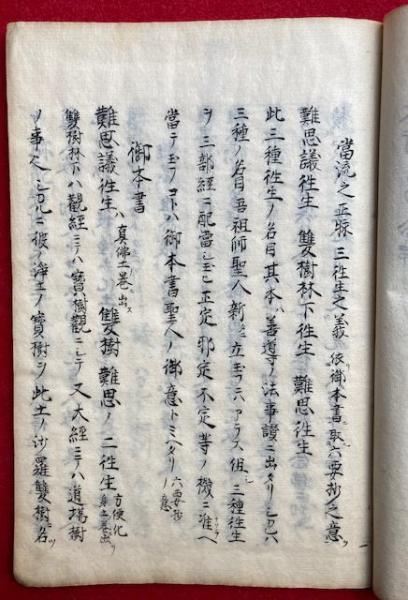 當流之正脉三往生之義 依御本書取六要抄之意ヲ
難思議往生 雙樹林下往生 難思往生
此三種往生ノ名目其本ハ善導ノ法事讃ニ出タリシカレハ
三種ノ名目吾祖師聖人新ニ立玉フニアラス但シ三種往生
ヲ三部經ニ配當シ玉ヒ正定邪定不定等ノ機ニ准ヘ
當テ玉フコトハ御本書聖人ノ御意トミヘタリ 六要抄ノ意
御本書
難思議往生ハ 真佛土ノ巻ニ出ス 雙樹難思ノ二往生 方便化身土巻出ツ
雙樹林下ハ觀經ニテハ寶樹觀ニシテ又大經ニテハ道場樹
ノ事ナリシカルニ彼ノ淨土ノ寶樹ヲ此土ノ沙羅雙樹ニ名ツ